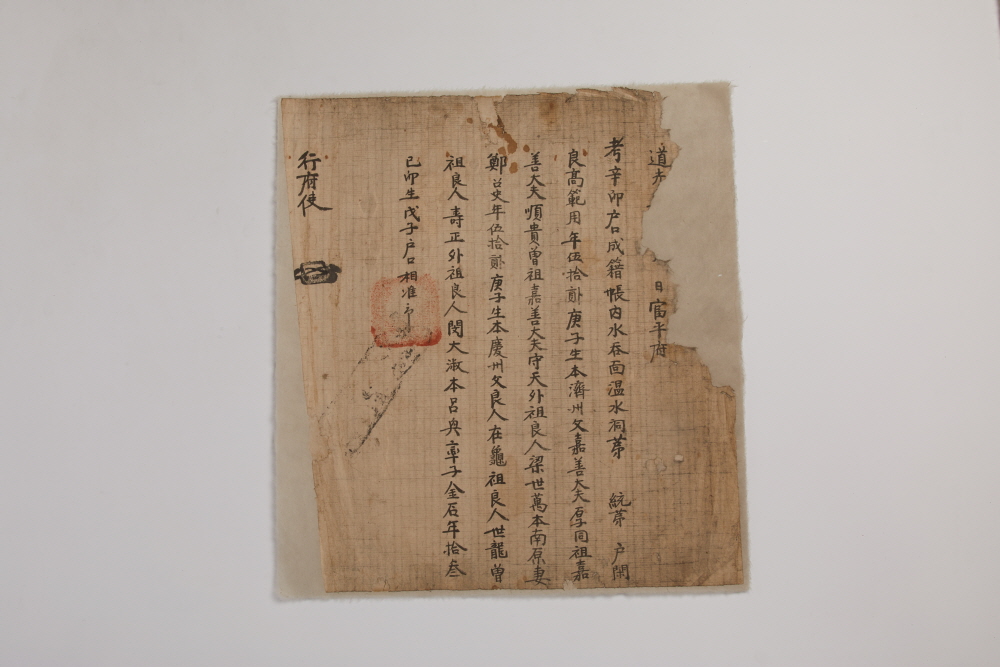 道光 日富平府
考辛卯戶口成籍帳內水呑面温水洞苐 統苐 戶閑
良高範用年伍拾貳庚子生本濟州父嘉善大夫 祖嘉
善大夫順貴曾祖嘉善大夫守天外祖良人梁世萬本南原妻
鄭召史年伍拾貳庚子生本慶州父良人在龜祖良人世龍曾
祖良人壽正外祖良人閔大淑本呂興率子金石年拾叁
己卯生戊子戶口相准印
行府使